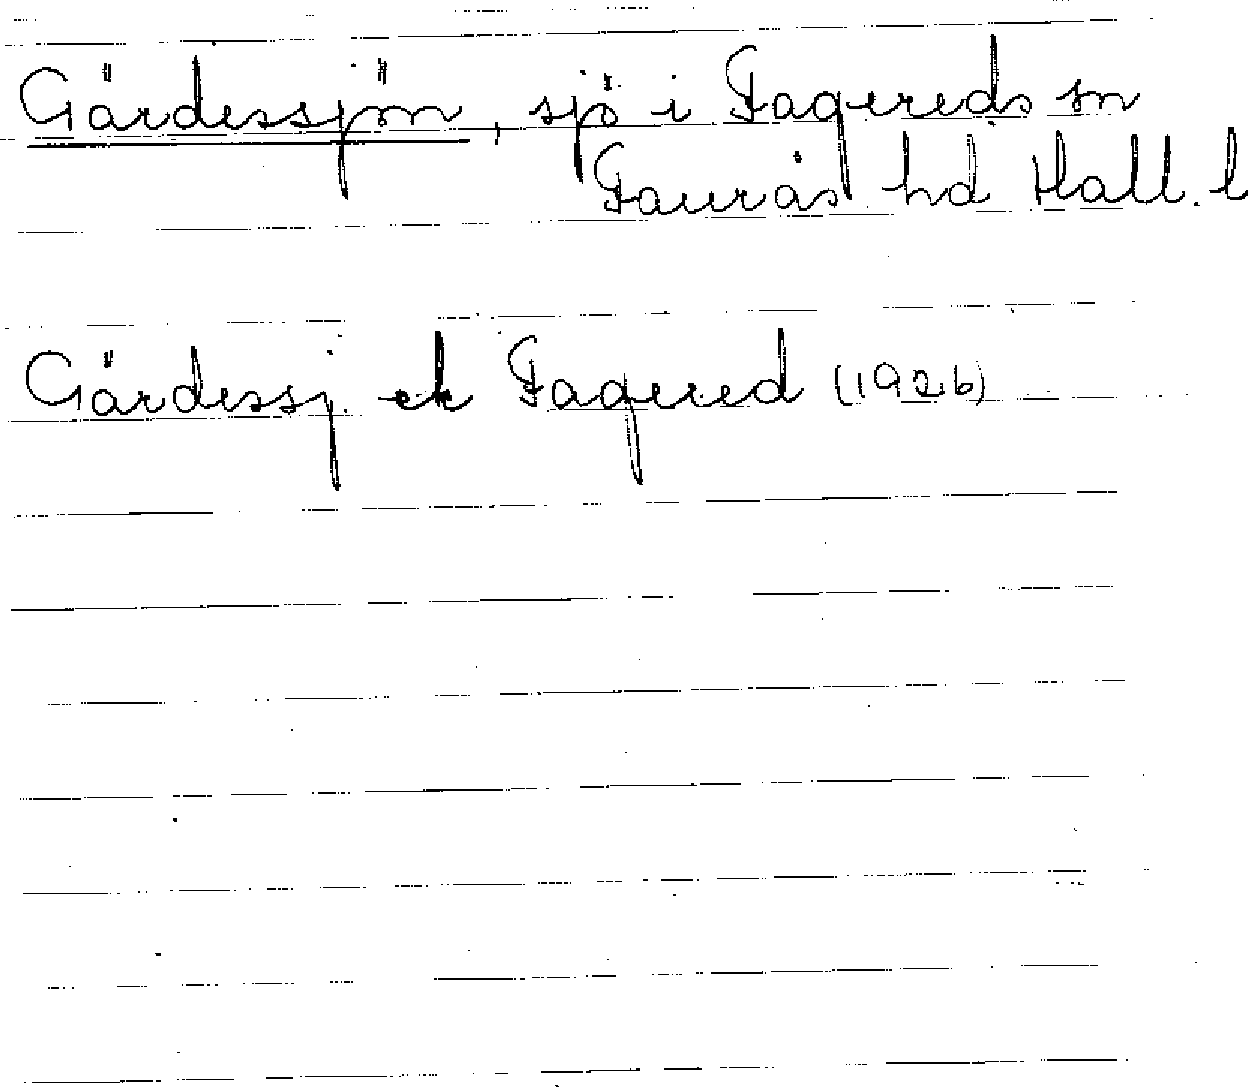 Gärdessjön, sjö i Fagereds sn
Faurås hd Hall. l
Gärdessj. ek Fagered (1926)